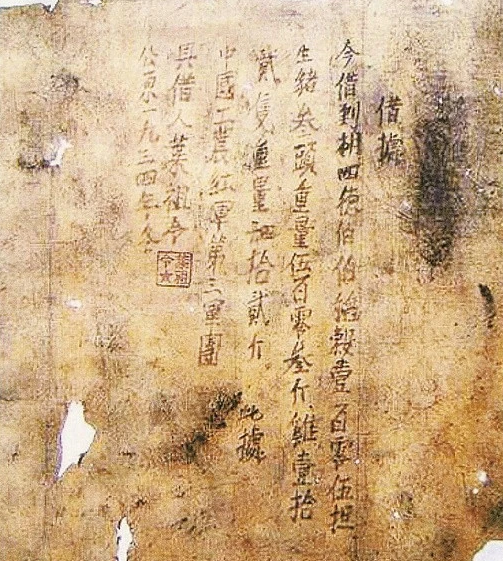 借據
今借到胡四德伯伯稻穀壹百零伍担
生豬叁頭重量伍百零叁斤，雞壹拾
貳隻重量四拾貳斤。此據
中國工農紅軍第三軍團
具借人葉祖令
公原一九三四年冬
葉祖令